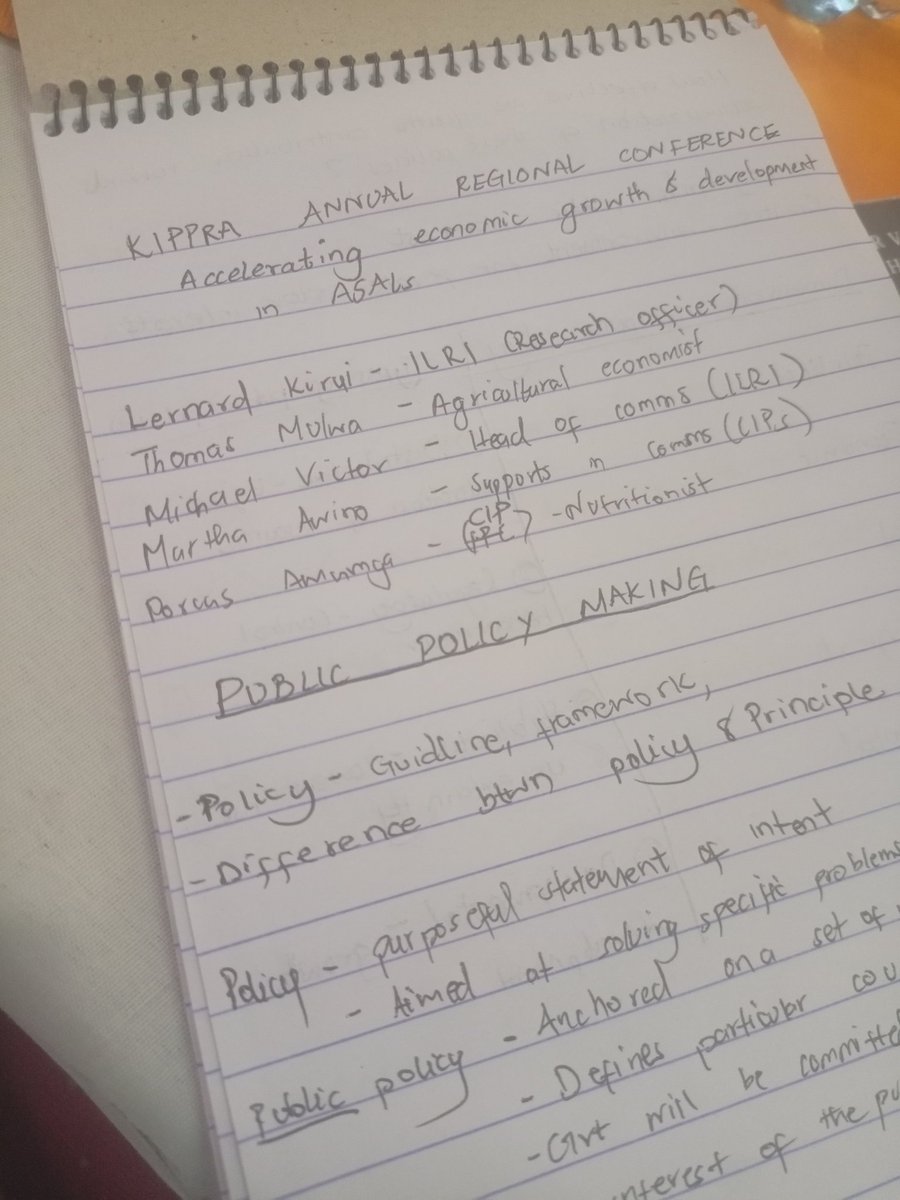 KIPPRA ANNUAL REGIONAL CONFERENCE
Accelerating economic growth & development
in ASALs
Lernard Kirui - ILRI (Research officer)
Thomas Mulwa - Agricultural economist
Michael Victor - Head of comms (ILRI)
Martha Awino - Supports in comms (CIPs)
Dorcus Amunga - (CIP) - Nutritionist
PUBLIC POLICY MAKING
- Policy - Guidline, framework,
- Difference btwn policy & Principle
Policy - purposeful statement of intent
- Aimed at solving specific problems
Public policy - Anchored on a set of
- Defines particular cou
- Gvt will be committe
interest of the pu